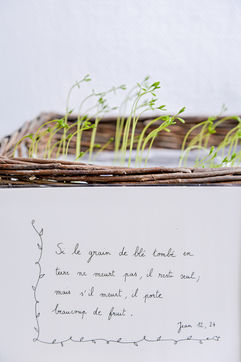 Si le grain de blé tombé en
terre ne meurt pas, il reste seul,
mais s'il meurt, il porte
beaucoup de fruit.
Jean 12, 24